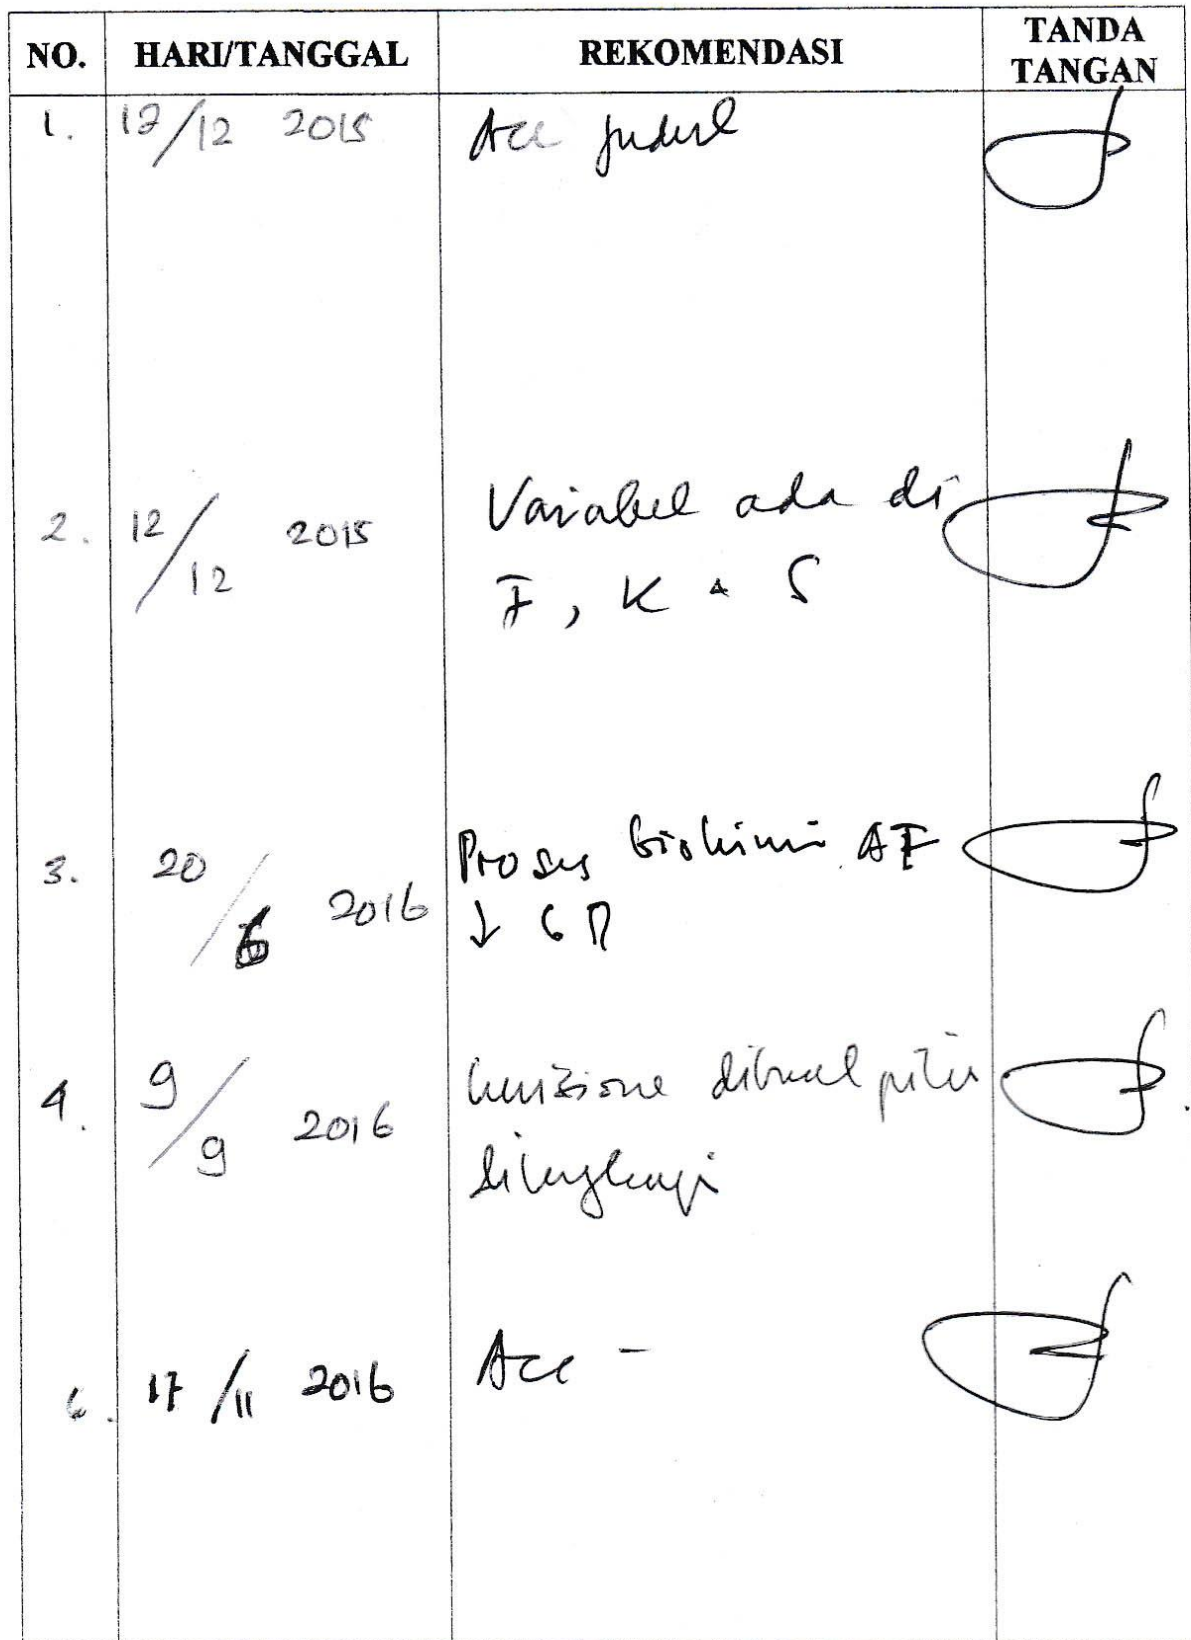 NO. HARI/TANGGAL REKOMENDASI TANDA TANGAN
1. /12 2015 Acc judul
2. 12/12 2015 Variabel ada di
F, K S
3. 20/6 2016 Proses biokimia AF
↓ 6
4. 9/9 2016 dibuat
dilengkapi
17/11 2016 Acc -